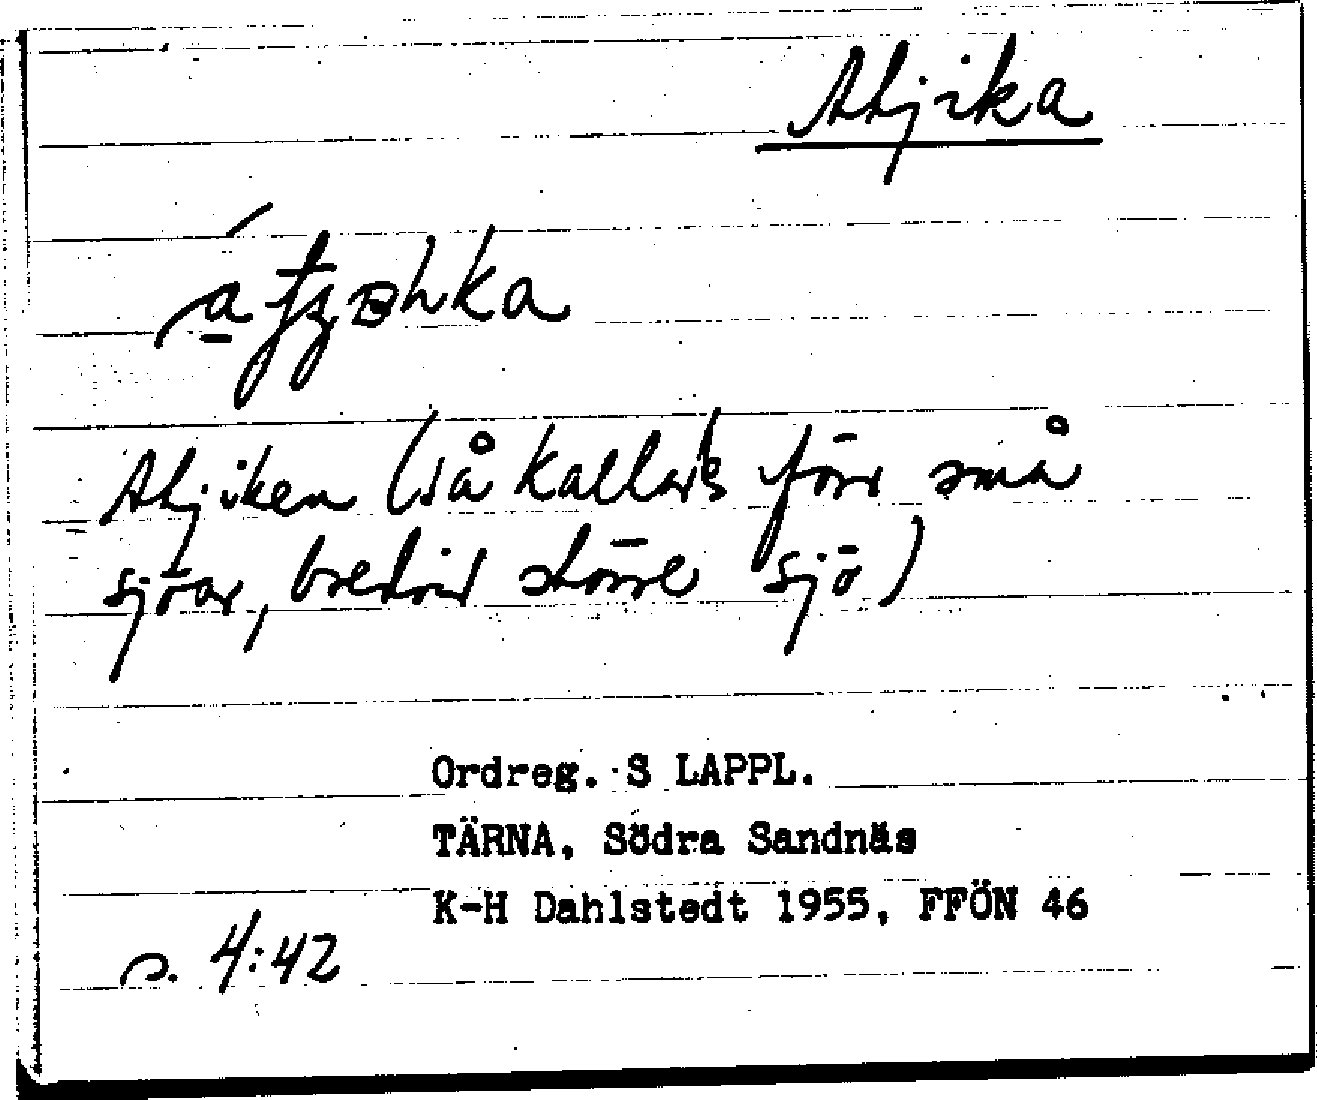 Atjika
Atjiken (så kallads förr små
sjöar, bredvid större sjö)
Ordreg. S LAPPL.
TÄRNA, Södra Sandnäs
K-H Dahlstedt 1955, FFÖN 46
s. 4:42